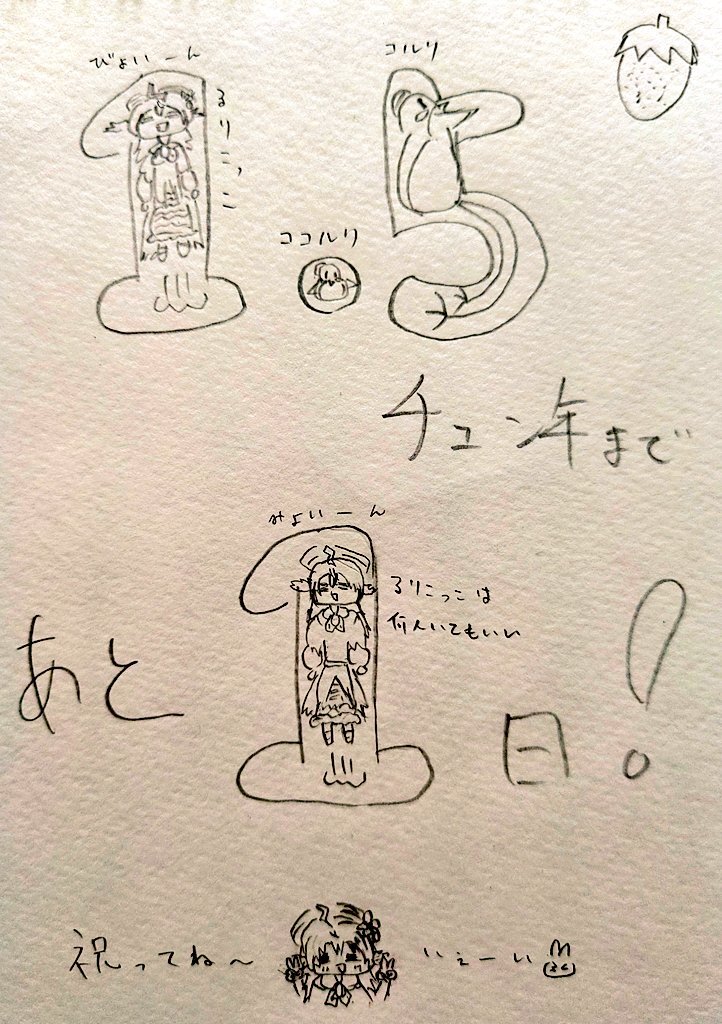 びょいーん
るりこっこ
コルリ
1.5
ココルリ
チュン年まで
みょいーん
るりこっこは
何人いてもいい
あと1日!
祝ってね〜
いぇーい